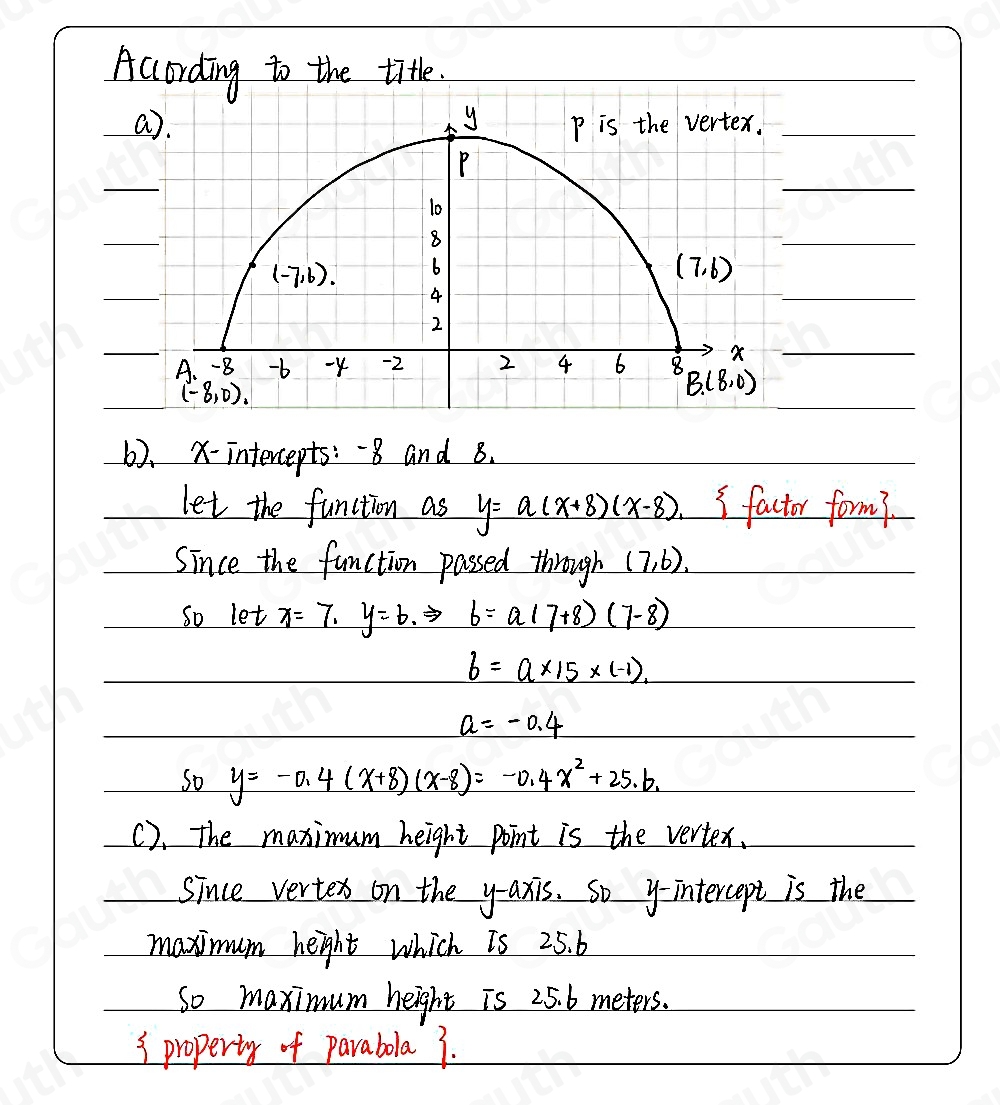 According to the title.
a).
y
P is the vertex.
P
10
8
(-7,6).
6
(7,6)
4
2
A. -8 -6 -4 -2 2 4 6 8 x
(-8,0). B.(8,0)
b). x-intercepts: -8 and 8.
let the function as y= a(x+8)(x-8). {factor form}.
Since the function passed through (7,6).
So let x=7. y=6. ⇒ 6=a(7+8)(7-8)
6 = a×15×(-1).
a= -0.4
So y= -0.4(x+8)(x-8)= -0.4x²+25.6.
c). The maximum height point is the vertex.
Since vertex on the y-axis. So y-intercept is the
maximum height which is 25.6
So maximum height is 25.6 meters.
{property of parabola}.
Gauth